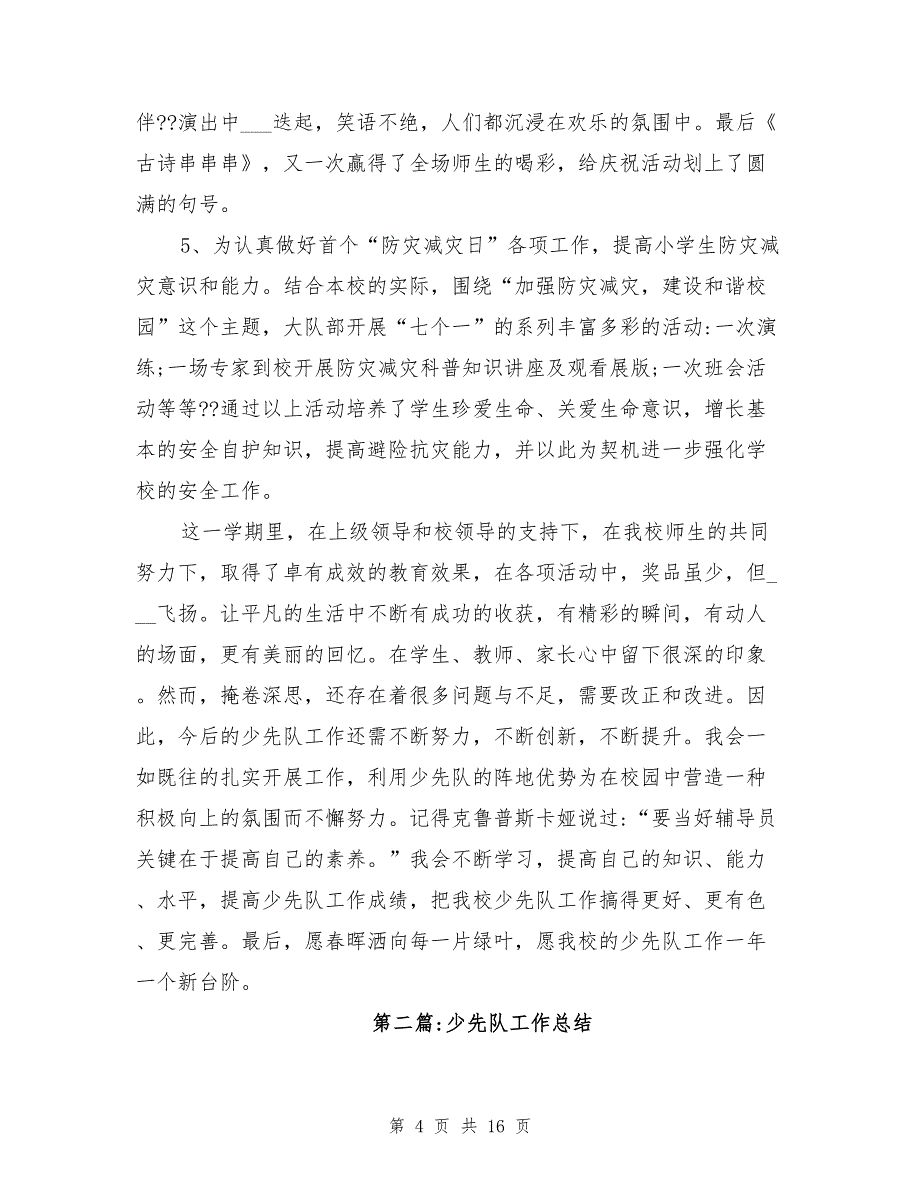 伴??演出中___迭起，笑语不绝，人们都沉浸在欢乐的氛围中。最后《
古诗串串串》，又一次赢得了全场师生的喝彩，给庆祝活动划上了圆
满的句号。
5、为认真做好首个“防灾减灾日”各项工作，提高小学生防灾减
灾意识和能力。结合本校的实际，围绕“加强防灾减灾，建设和谐校
园”这个主题，大队部开展“七个一”的系列丰富多彩的活动:一次演
练;一场专家到校开展防灾减灾科普知识讲座及观看展版;一次班会活
动等等??通过以上活动培养了学生珍爱生命、关爱生命意识，增长基
本的安全自护知识，提高避险抗灾能力，并以此为契机进一步强化学
校的安全工作。
这一学期里，在上级领导和校领导的支持下，在我校师生的共同
努力下，取得了卓有成效的教育效果，在各项活动中，奖品虽少，但_
__飞扬。让平凡的生活中不断有成功的收获，有精彩的瞬间，有动人
的场面，更有美丽的回忆。在学生、教师、家长心中留下很深的印象
。然而，掩卷深思，还存在着很多问题与不足，需要改正和改进。因
此，今后的少先队工作还需不断努力，不断创新，不断提升。我会一
如既往的扎实开展工作，利用少先队的阵地优势为在校园中营造一种
积极向上的氛围而不懈努力。记得克鲁普斯卡娅说过:“要当好辅导员
关键在于提高自己的素养。”我会不断学习，提高自己的知识、能力
、水平，提高少先队工作成绩，把我校少先队工作搞得更好、更有色
、更完善。最后，愿春晖洒向每一片绿叶，愿我校的少先队工作一年
一个新台阶。
第二篇:少先队工作总结
第 4 页 共 16 页